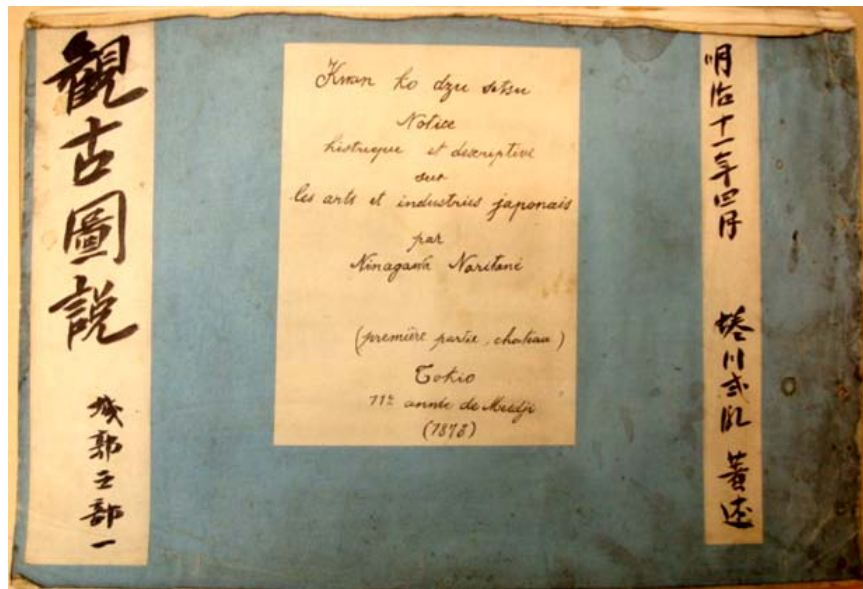 観古圖説
城郭之部一
Kwan ko dzu setsu
Notice
histrique et descriptive
sur
les arts et industries japonais
par
Ninagawa Noritani
(première partie, chateau)
Tokio
11e année de Meidji
(1878)
明治十一年四月
蜷川式胤 著述